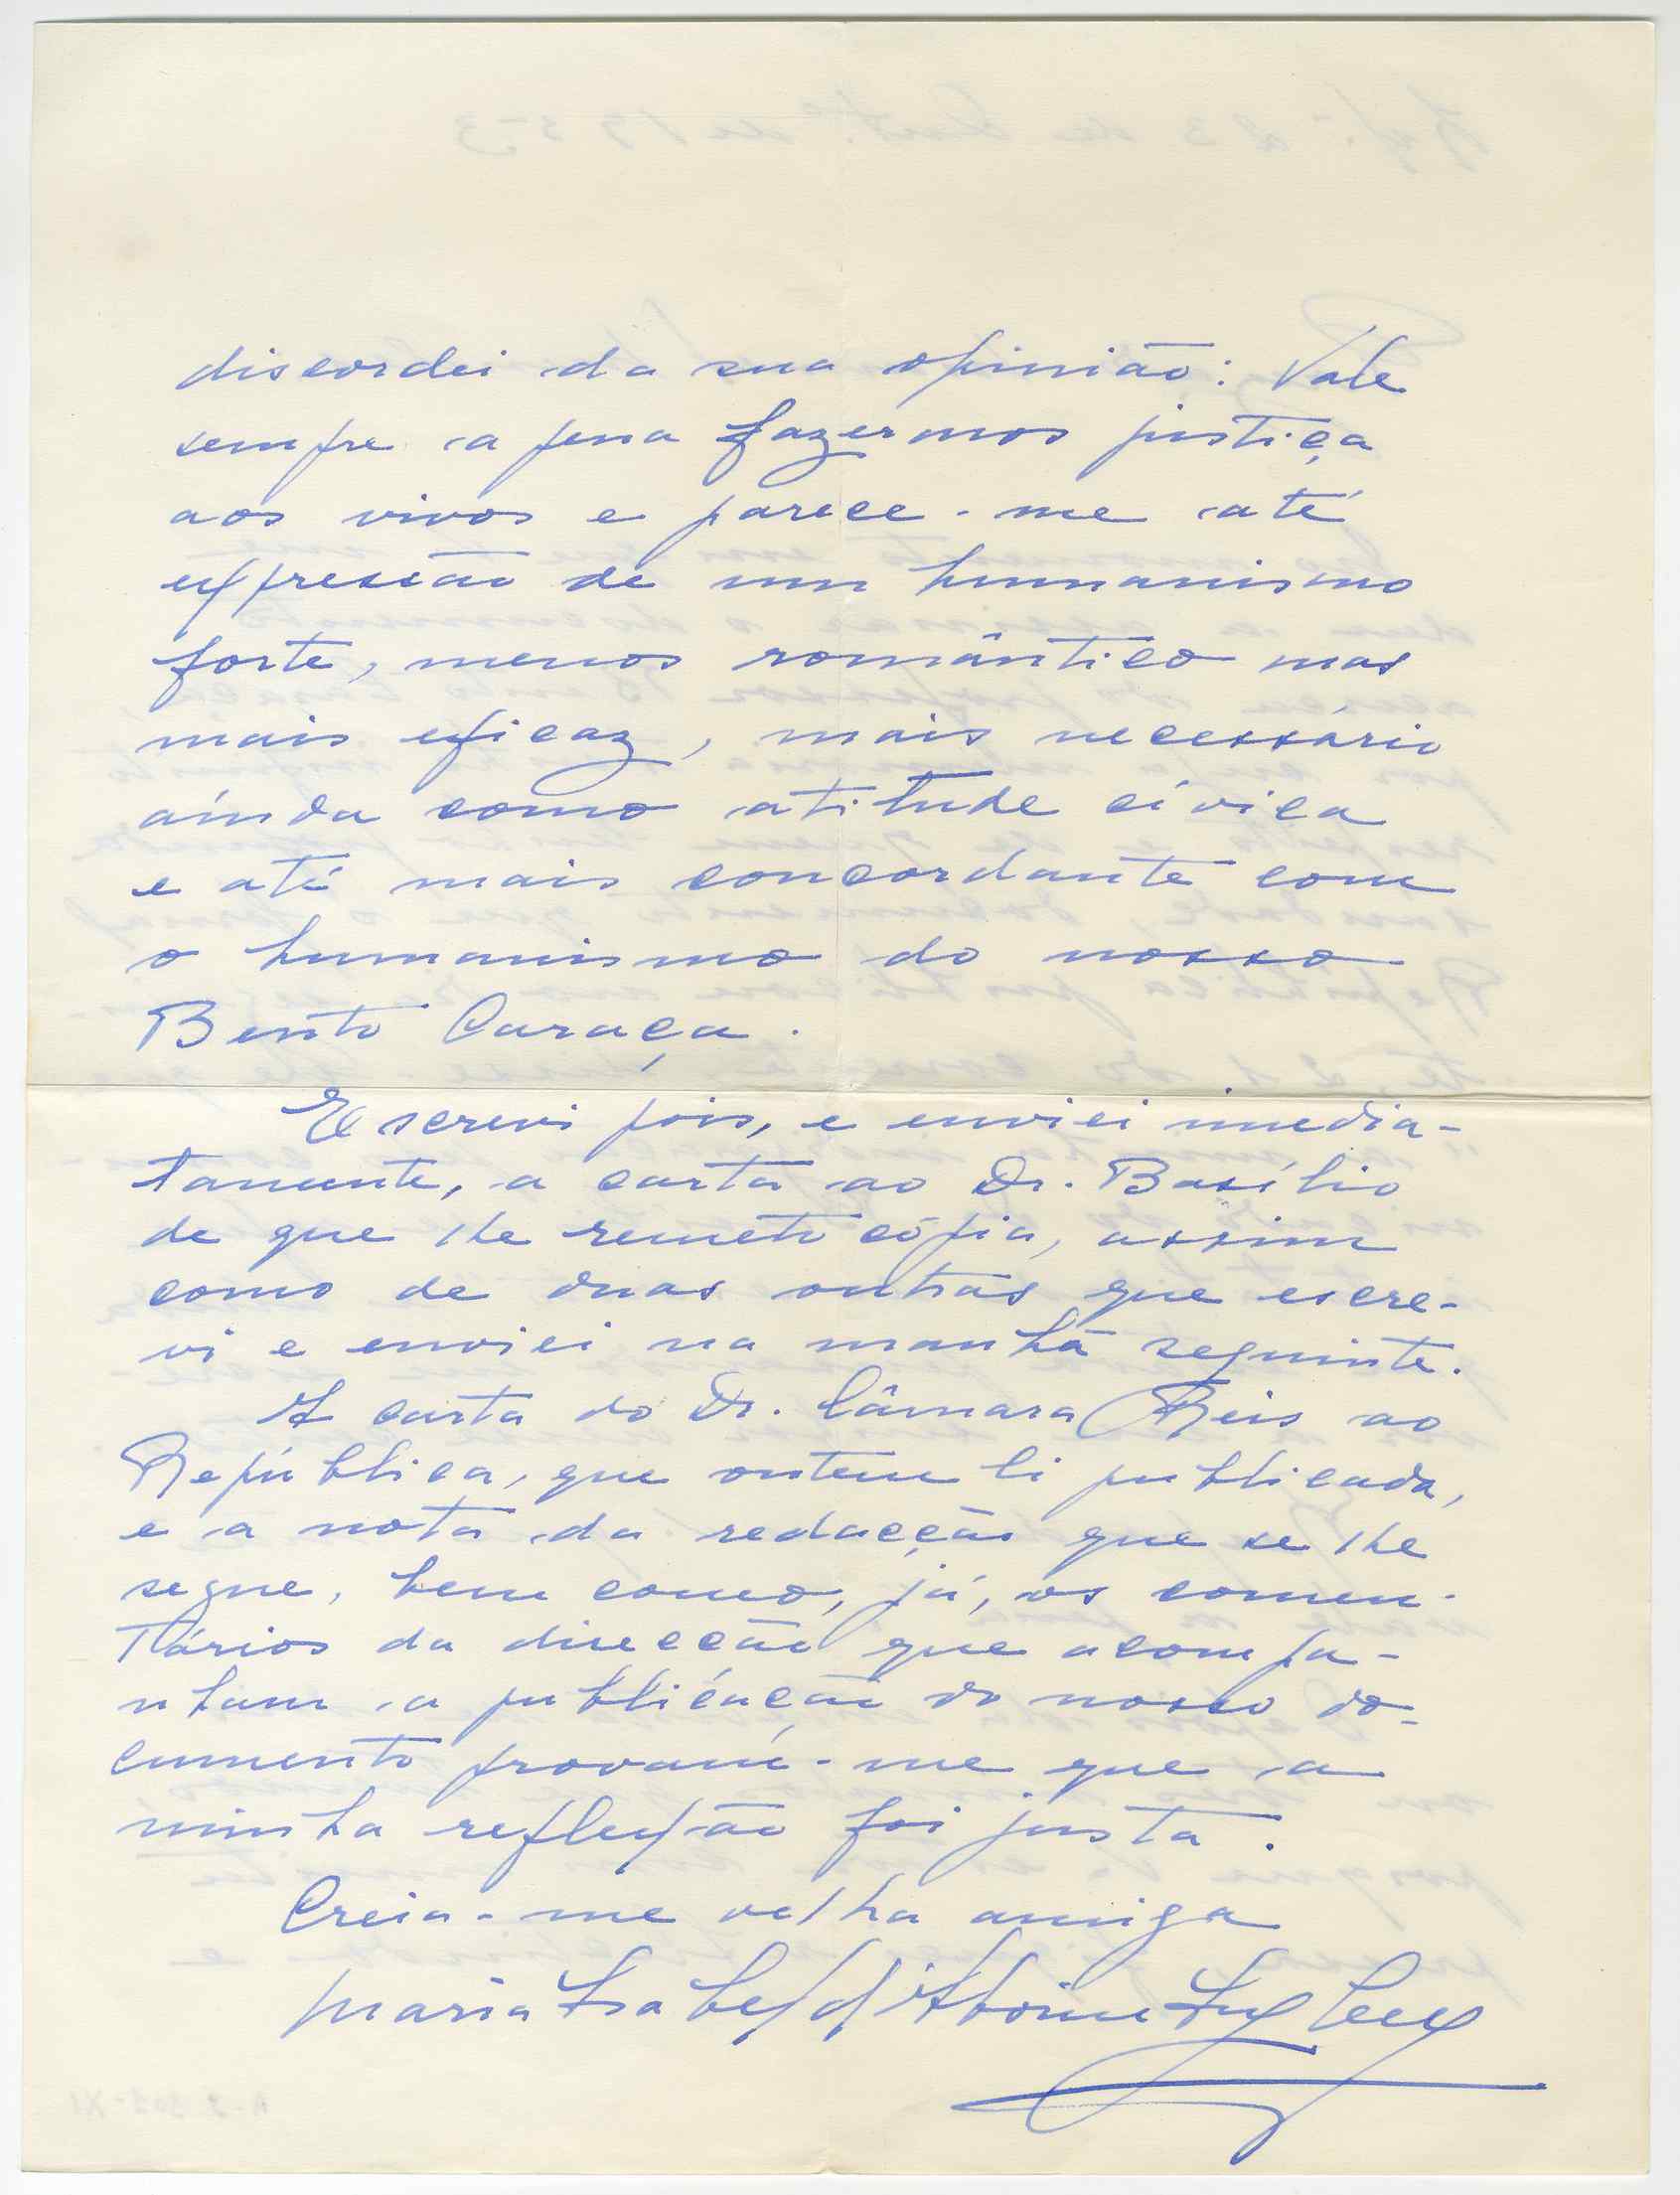 discordei da sua opinião: Vale
sempre a pena fazermos justiça
aos vivos e parece-me até
expressão de um humanismo
forte, menos romântico mas
mais eficaz, mais necessário
ainda como atitude cívica
e até mais concordante com
o humanismo do nosso
Bento Caraça.
Escrevi pois, e enviei imedia-
tamente, a carta ao Dr. Basílio
de que lhe remeto cópia, assim
como de duas outras que escre-
vi e enviei na manhã seguinte.
A carta do Dr. Câmara Reis ao
República, que ontem li publicada,
e a nota da redacção que se lhe
segue, bem como, já, os comen-
tários da direcção que acompa-
nham a publicação do nosso do-
cumento provam-me que a
minha reflexão foi justa.
Creia-me velha amiga
Maria Isabel d'Aboim Inglez